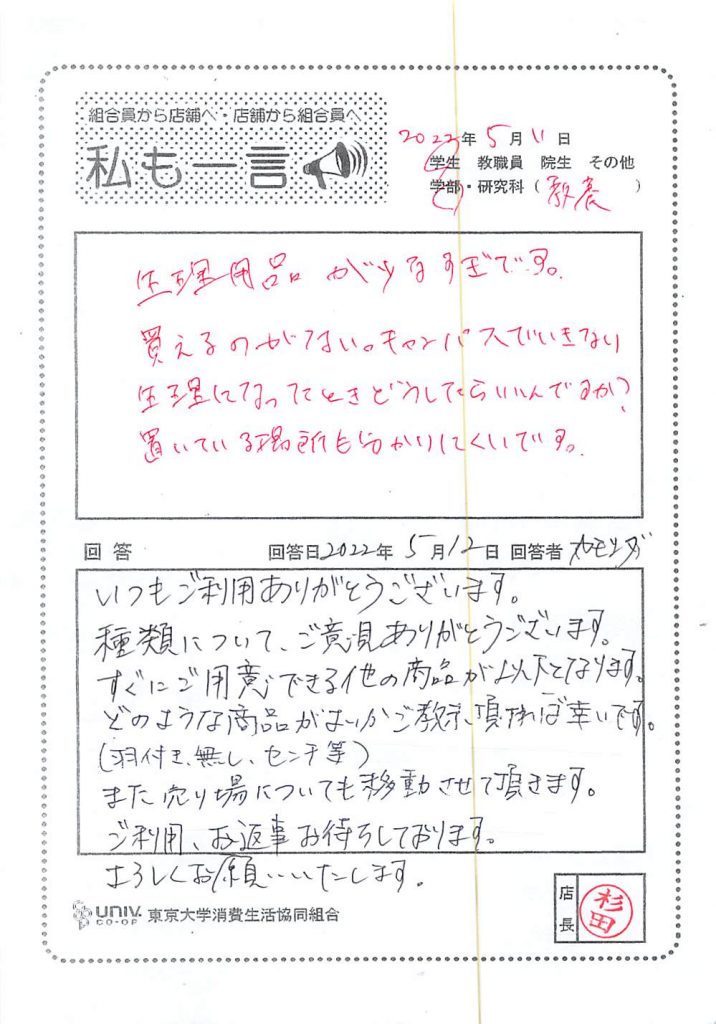 組合員から店舗へ・店舗から組合員へ
私も一言
2022年5月11日
学生 教職員 院生 その他
学部・研究科（教養）
生理用品が少なすぎです。
買えるのがない。キャンパスでいきなり
生理になったときどうしたらいいんですか?
置いている場所も分かりにくいです。
回答 回答日2022年5月12日 回答者
いつもご利用ありがとうございます。
種類について、ご意見ありがとうございます。
すぐにご用意できる他の商品が以下となります。
どのような商品がよいかご教示頂ければ幸いです。
(羽付き、無し、センチ等)
また売り場についても移動させて頂きます。
ご利用、お返事お待ちしております。
よろしくお願いいたします。
UNIV. CO-OP 東京大学消費生活協同組合
店長 杉田